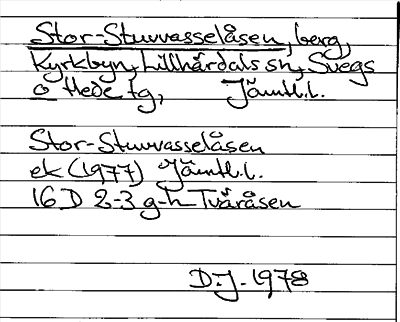 Stor-Stuvvasselåsen, berg,
Kyrkbyn, Lillhärdals sn, Svegs
o Hede tg, Jämtl.l.
Stor-Stuvvasselåsen
ek (1977) Jämtl.l.
16 D 2-3 g-h Tvåråsen
D.J. 1978